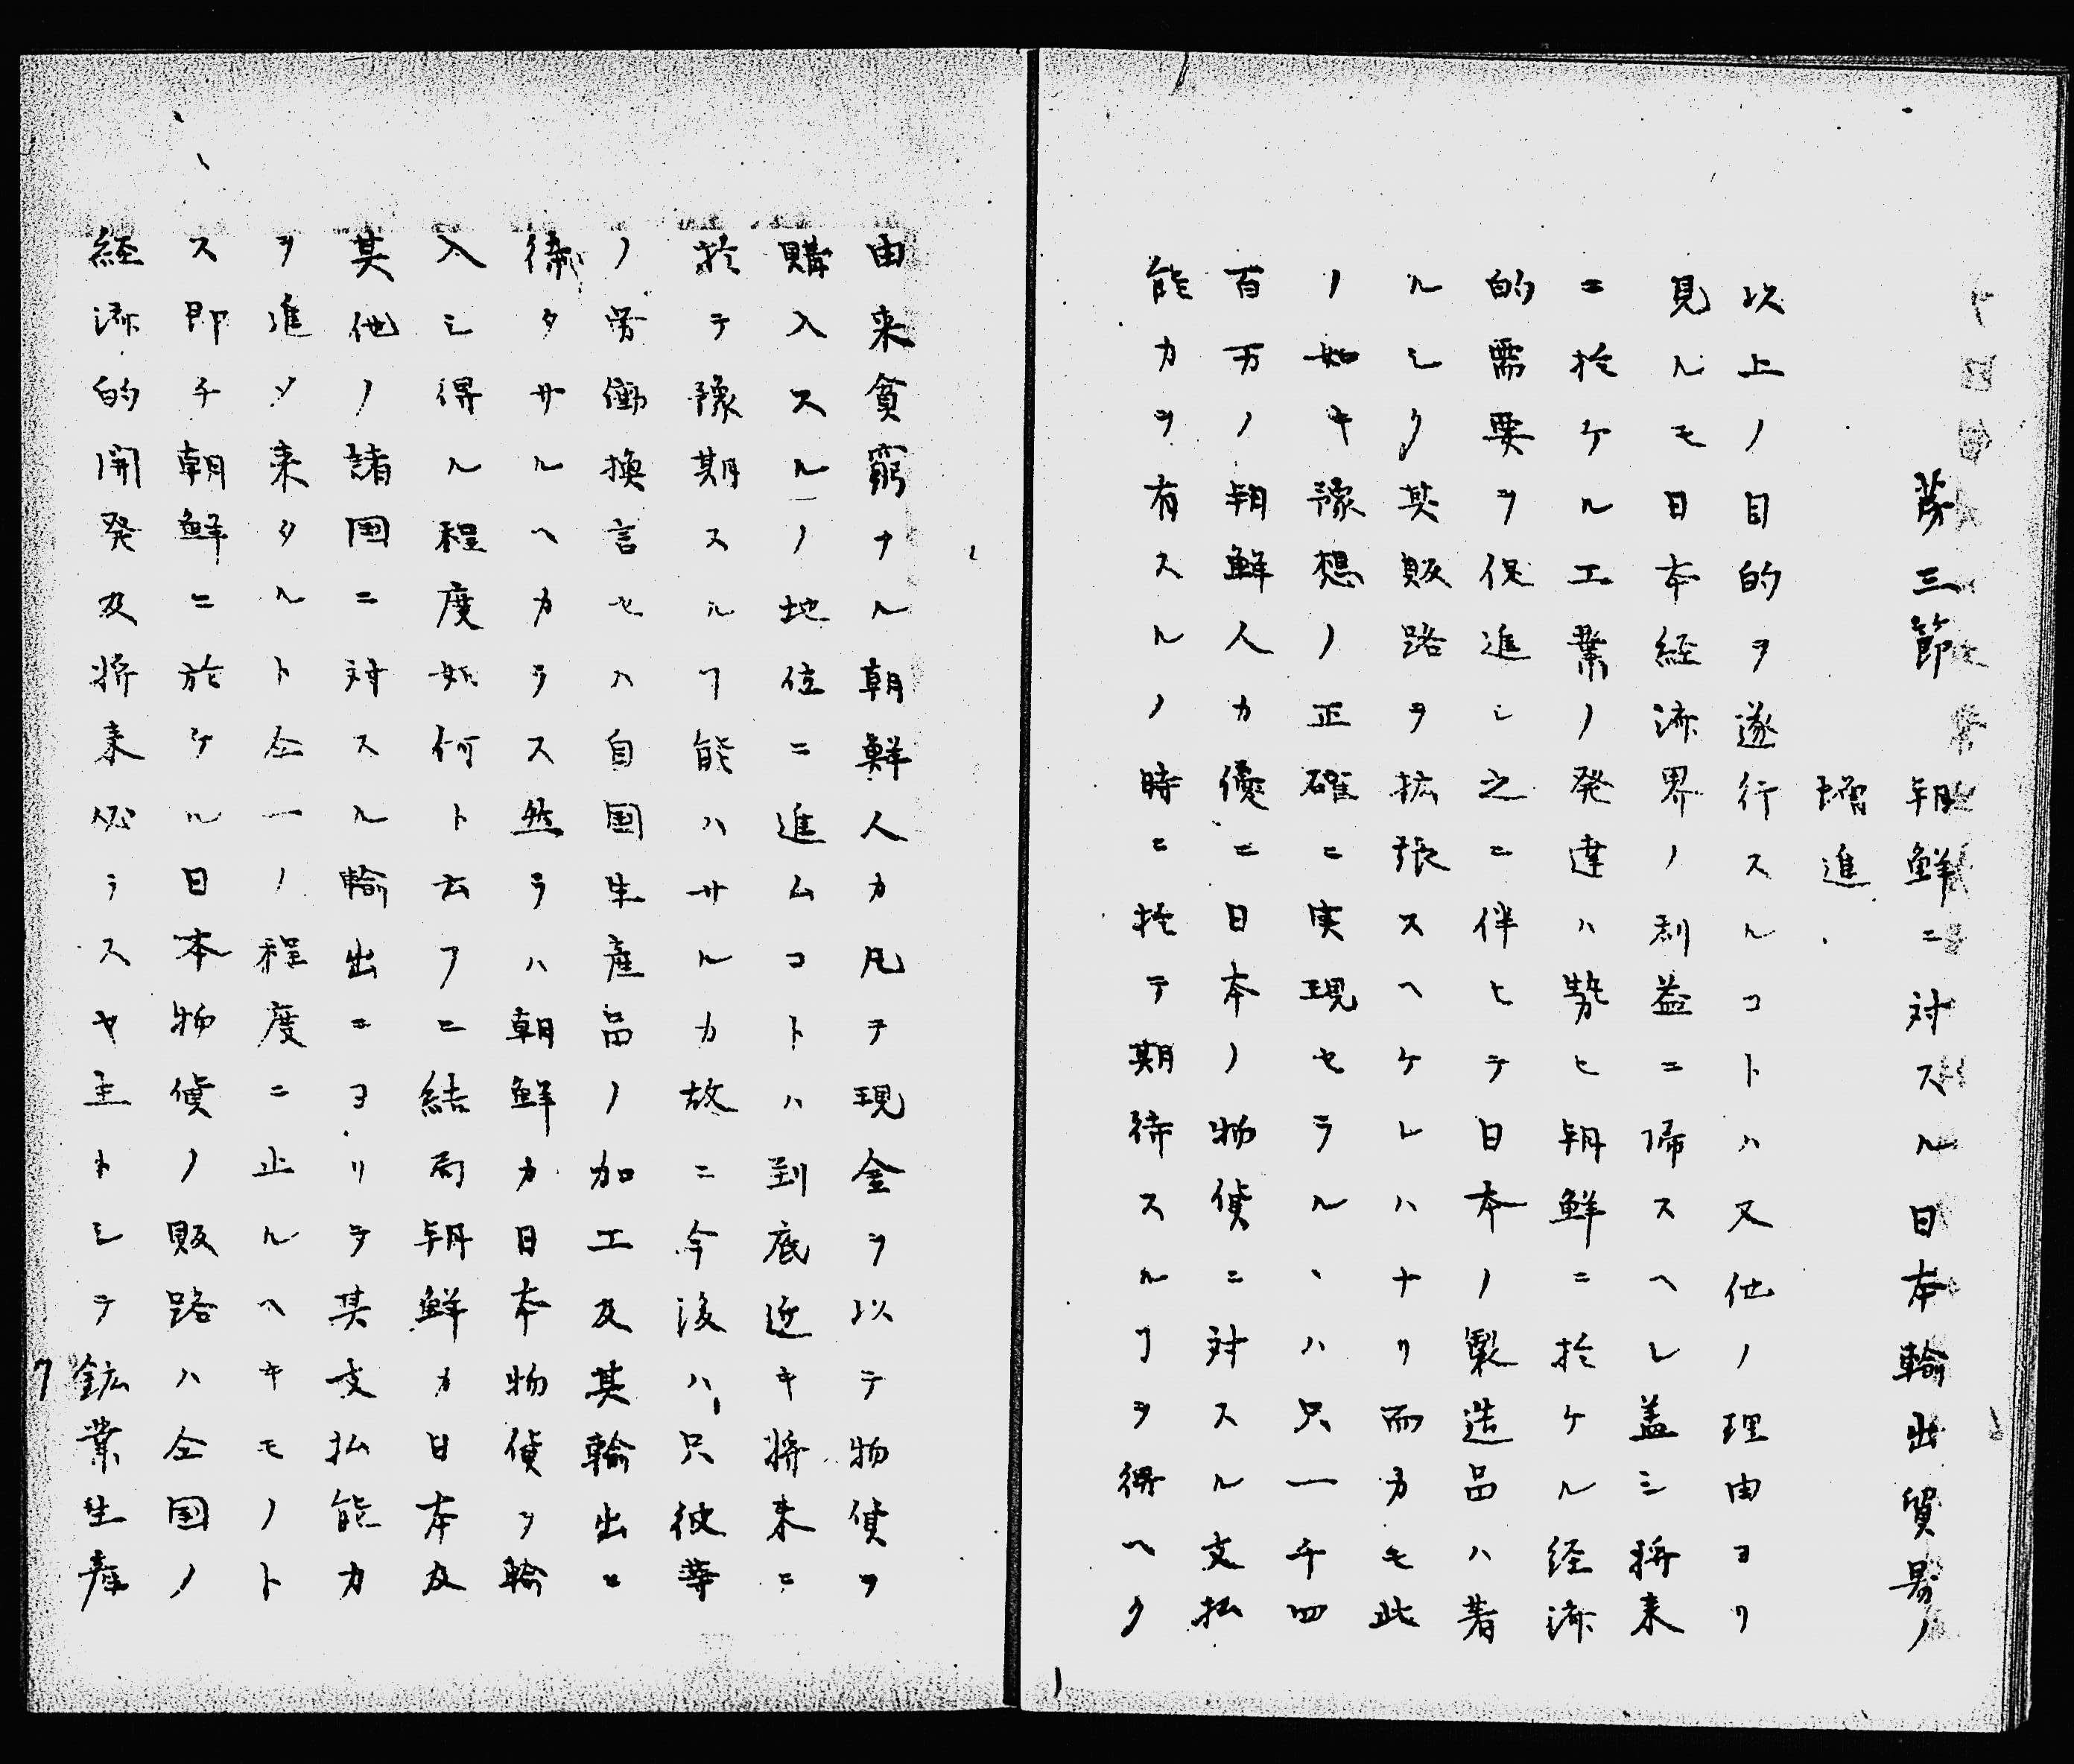 第三節　朝鮮ニ対スル日本輸出貿易ノ
増進
以上ノ目的ヲ遂行スルコトハ又他ノ理由ヨリ
見ルモ日本経済界ノ利益ニ帰スヘシ蓋シ将来
ニ於ケル工業ノ発達ハ勢ヒ朝鮮ニ於ケル経済
的需要ヲ促進シ之ニ伴ヒテ日本ノ製造品ハ著
ルシク其販路ヲ拡張スヘケレハナリ而カモ此
ノ如キ豫想ノ正確ニ実現セラルヽハ只一千四
百万ノ朝鮮人カ優ニ日本ノ物貨ニ対スル支払
能力ヲ有スルノ時ニ於テ期待スルヿヲ得ヘク
由来貧窮ナル朝鮮人カ凡テ現金ヲ以テ物貨ヲ
購入スルノ地位ニ進ムコトハ到底近キ将来ニ
於テ豫期スルヿ能ハサルカ故ニ今後ハ只彼等
ノ労働換言セハ自国生産品ノ加工及其輸出ニ
待タサルヘカラス然ラハ朝鮮カ日本物貨ヲ輸
入シ得ル程度如何ト云フニ結局朝鮮カ日本及
其他ノ諸国ニ対スル輸出ニヨリテ其支払能力
ヲ進メ来タルト仝一ノ程度ニ止ルヘキモノト
ス即チ朝鮮ニ於ケル日本物貨ノ販路ハ仝国ノ
経済的開発及将来必ラスヤ主トシテ鉱業生産